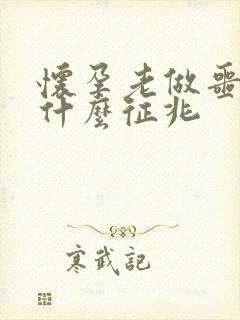 懷孕老做噩
什麼征兆
寒武記